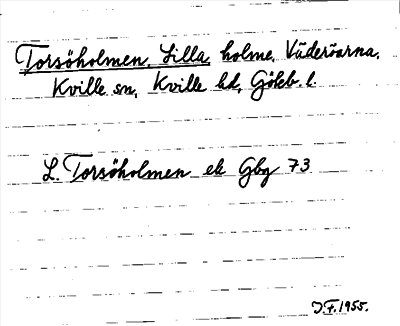 Torsöholmen, Lilla, holme, Väderöarna,
Kville sn, Kville hd, Göteb. l.
L. Torsöholmen ek Gbg 73
J.F. 1955.